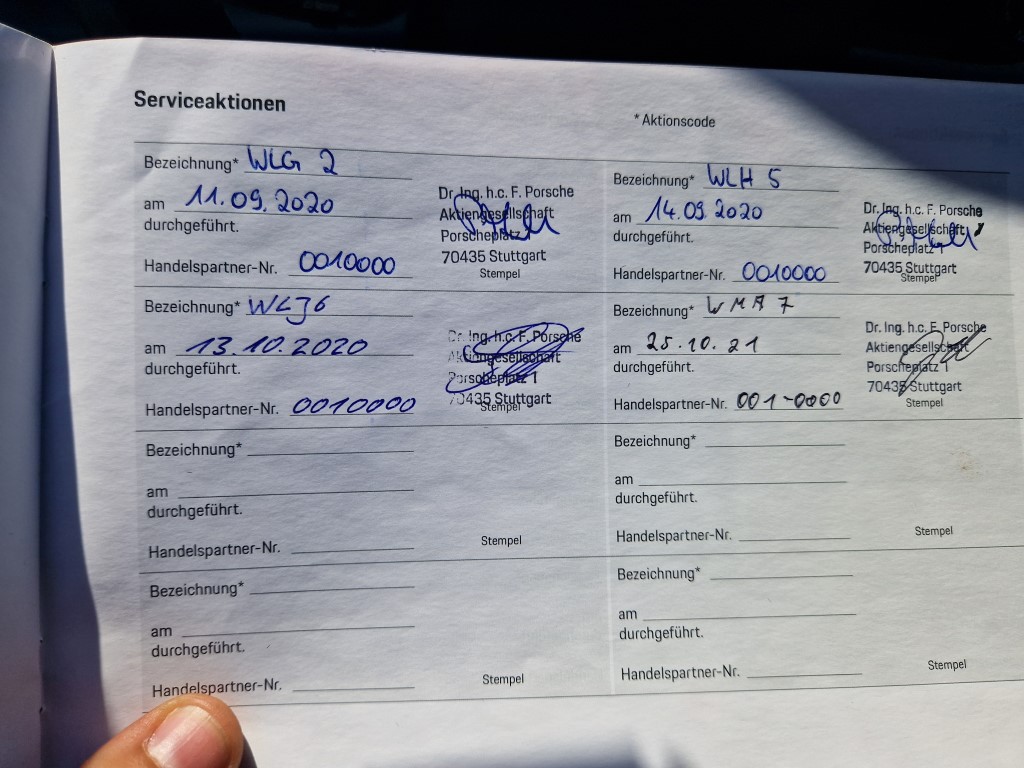 Serviceaktionen
* Aktionscode
Bezeichnung* WLG 2
am 11.09.2020
durchgeführt.
Handelspartner-Nr. 0010000
Dr. Ing. h.c. F. Porsche
Aktiengesellschaft
Porscheplatz 1
70435 Stuttgart
Stempel
Bezeichnung* WLH 5
am 14.09.2020
durchgeführt.
Handelspartner-Nr. 0010000
Dr. Ing. h.c. F. Porsche
Aktiengesellschaft
Porscheplatz 1
70435 Stuttgart
Stempel
Bezeichnung* WLJ6
am 13.10.2020
durchgeführt.
Handelspartner-Nr. 0010000
Dr. Ing. h.c. F. Porsche
Aktiengesellschaft
Porscheplatz 1
70435 Stuttgart
Stempel
Bezeichnung* WMA 7
am 25.10.21
durchgeführt.
Handelspartner-Nr. 001-0000
Dr. Ing. h.c. F. Porsche
Aktiengesellschaft
Porscheplatz 1
70435 Stuttgart
Stempel
Bezeichnung*
am
durchgeführt.
Handelspartner-Nr.
Stempel
Bezeichnung*
am
durchgeführt.
Handelspartner-Nr.
Stempel
Bezeichnung*
am
durchgeführt.
Handelspartner-Nr.
Stempel
Bezeichnung*
am
durchgeführt.
Handelspartner-Nr.
Stempel